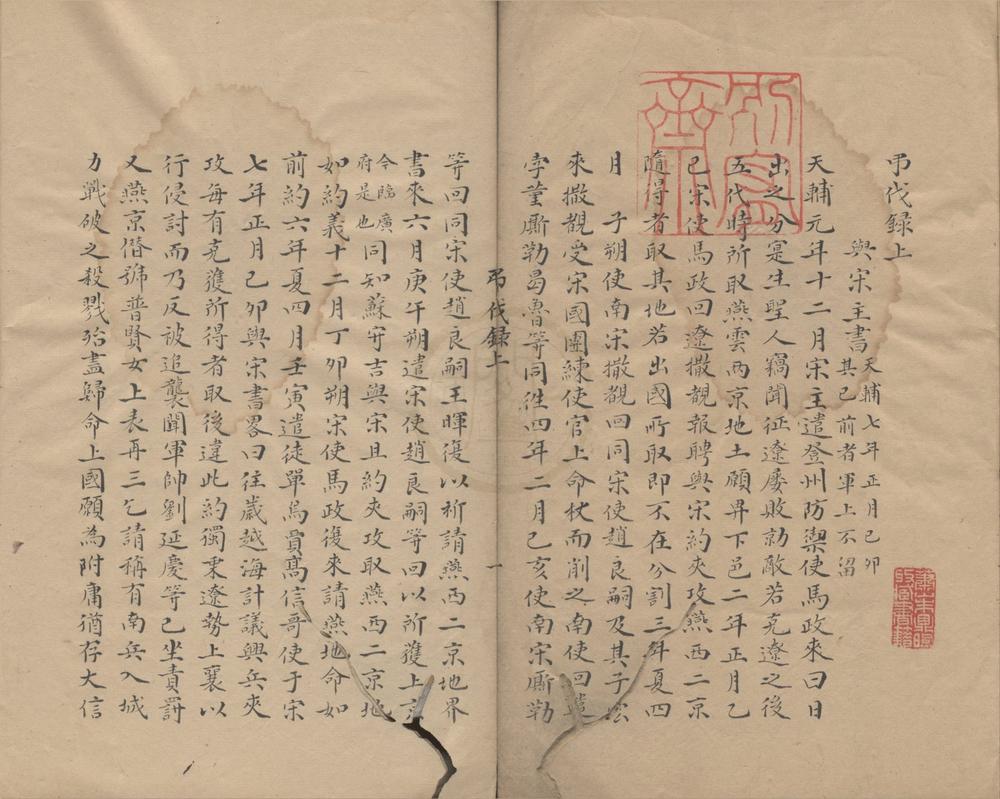 弔伐録上
與宋主書天輔七年正月己卯其已前者軍上不留
天輔元年十二月宋主遣登州防禦使馬政來曰日
出之分寔生聖人竊聞征遼屡敗勍敵若克遼之後
五代時所取燕雲两京地土願畀下邑二年正月乙
巳宋使馬政回遼撒覩報聘與宋約夾攻燕西二京
隨得者取其地若出國所取即不在分割三年夏四
月子朔使南宋撒覩回同宋使趙良嗣及其子宏
來撒覩受宋國團練使官上命杖而削之南使回遣
孛堇斯勒曷魯等同往四年二月己亥使南宋斯勒
等回同宋使趙良嗣王暉復以祈請燕西二京地界
書來六月庚午朔遣宋使趙良嗣等回以所獲上京
今臨廣府是也同知蘇守吉與宋且約夾攻取燕西二京地
如約義十二月丁卯朔宋使馬政復來請燕地命如
前約六年夏四月壬寅遣徒單烏賈髙信哥使于宋
七年正月己卯與宋書畧曰往歲越海計議興兵夾
攻每有克獲所得者取後違此約獨乘遼勢上襄以
行侵討而乃反被追襲聞軍帥劉延慶等已坐責罸
又燕京僭號普賢女上表再三乞請稱有南兵入城
力戰破之殺戮殆盡歸命上國願為附庸猶存大信
弔伐録上
一